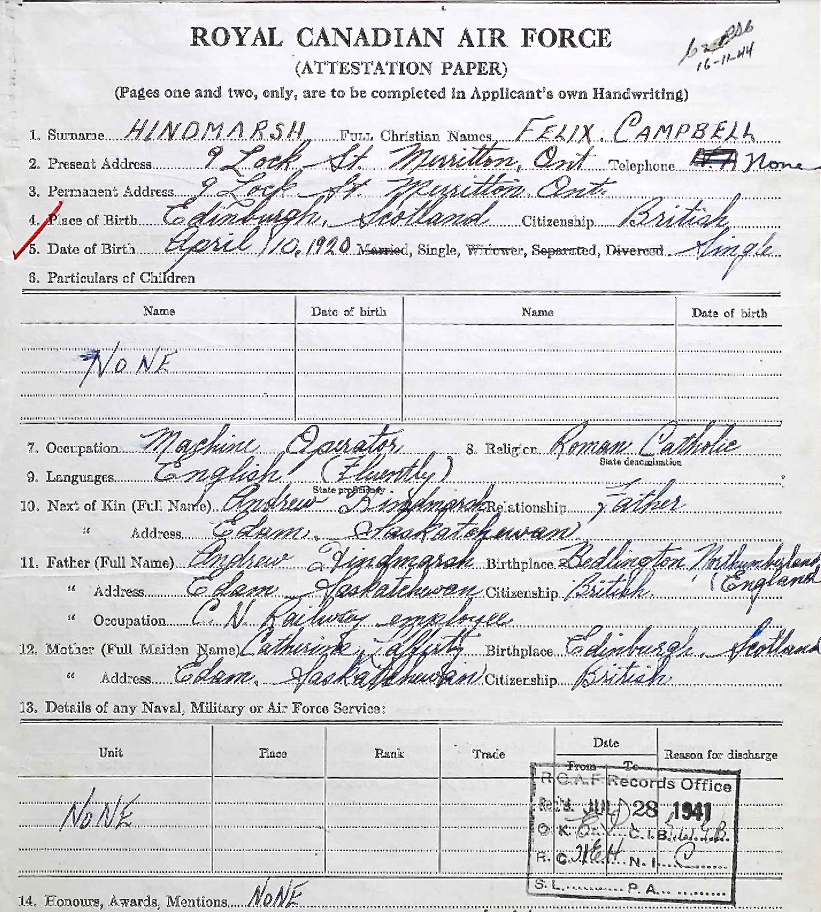 16-11-44
ROYAL CANADIAN AIR FORCE
(ATTESTATION PAPER)
(Pages one and two, only, are to be completed in Applicant's own Handwriting)
1. Surname HINDMARSH Full Christian Names FELIX. CAMPBELL
2. Present Address 9 Lock St. Merritton, Ont Telephone N.A None
3. Permanent Address 9 Lock St Merritton, Ont.
4. Place of Birth Edinburgh, Scotland Citizenship British
5. Date of Birth April 10, 1920 Married, Single, Widower, Separated, Divorced Single
6. Particulars of Children
Name Date of birth Name Date of birth
NONE
7. Occupation Machine Operator 8. Religion Roman Catholic
State denomination
9. Languages English (Fluently)
State proficiency
10. Next of Kin (Full Name) Andrew Hindmarsh Relationship Father
" Address Edam. Saskatchewan
11. Father (Full Name) Andrew Hindmarsh Birthplace Bedlington Northumberland
" Address Edam Saskatchewan Citizenship British (England
" Occupation C.N. Railway employee
12. Mother (Full Maiden Name) Catherine Birthplace Edinburgh. Scotland
" Address Edam. Saskatchewan Citizenship British
13. Details of any Naval, Military or Air Force Service:
Unit Place Rank Trade Date Reason for discharge
From To
NONE
R.C.A.F Records Office
Rec'd. 28 1941
O.K. C.I.B.
R.C. N.I. C
S.L. P.A.
14. Honours, Awards, Mentions NONE